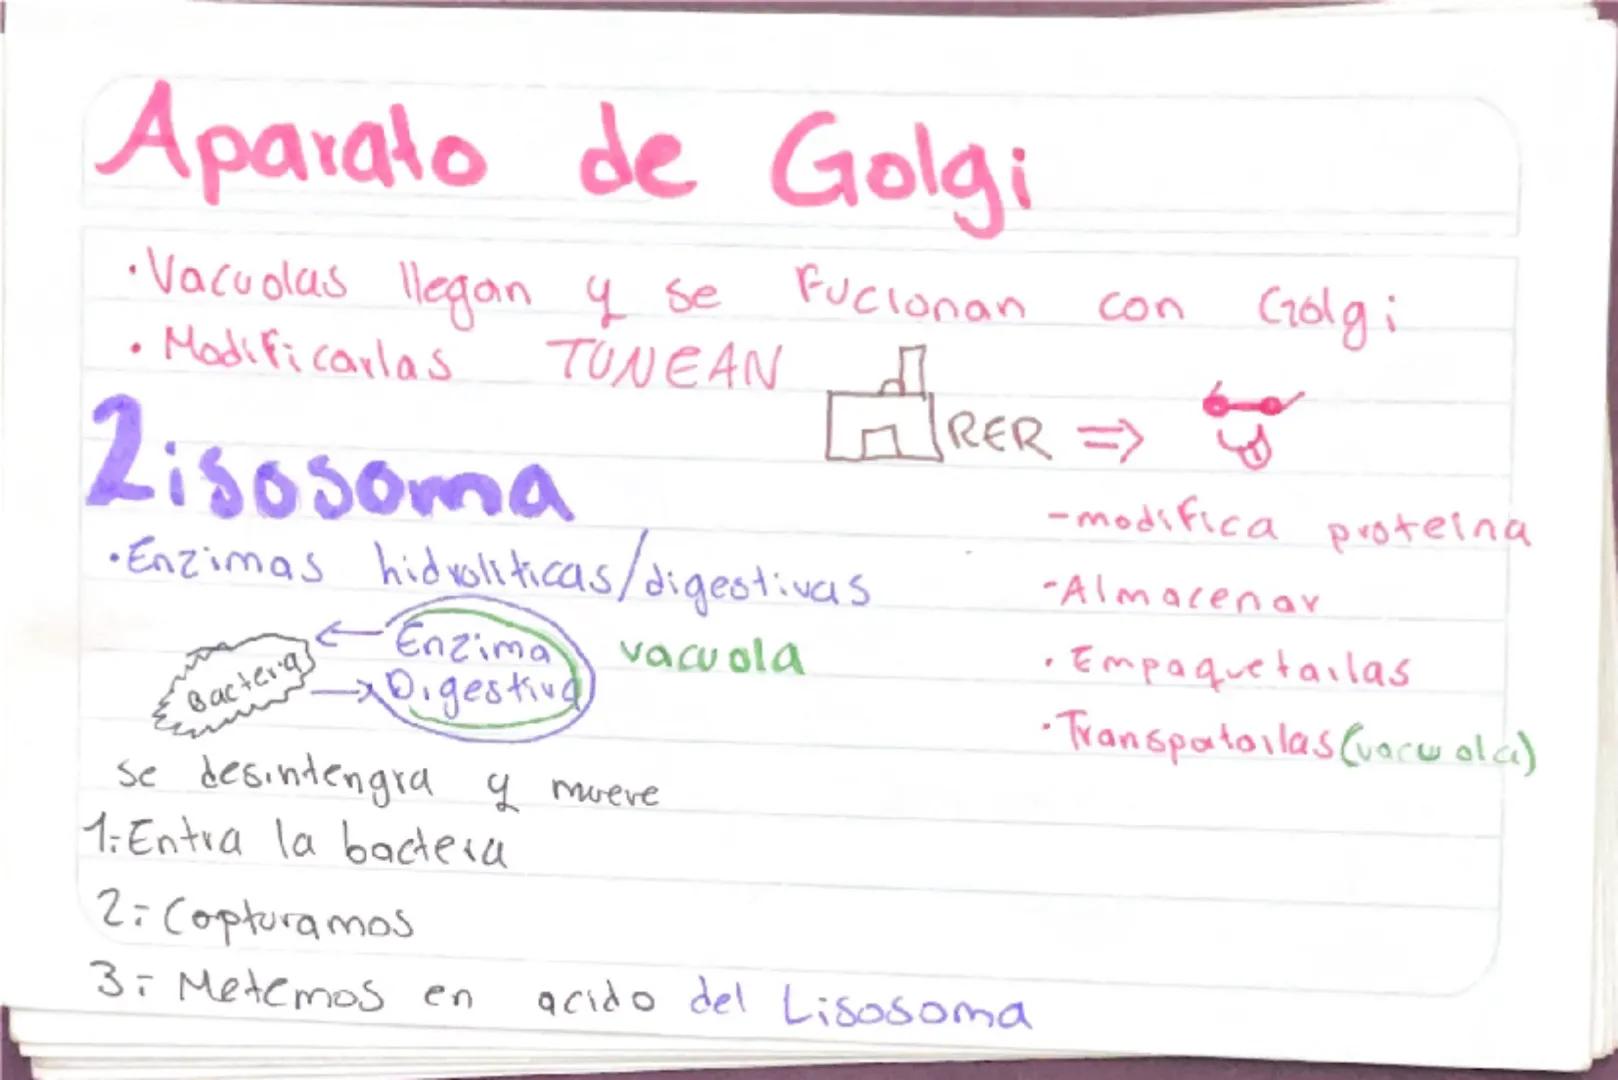 Aparato de Golgi
·Vacuolas llegan y se Fucionan con Golgi
·Modificarlas TUNEAN
RER ⇒
-modifica proteina
-Almacenar
·Empaquetarlas
·Transpotarlas (vacuola)
Lisosoma
·Enzimas hidroliticas/digestivas
Bacteria
Enzima
Digestiva
vacuola
se desintengra y mueve
1.-Entra la bacteria
2.- Capturamos
3.- Metemos en acido del Lisosoma